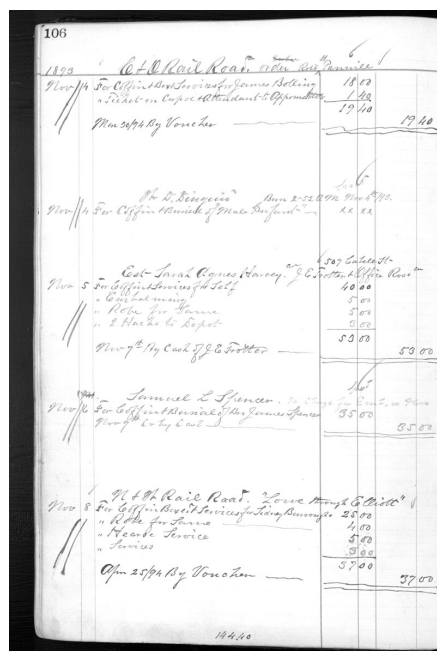 106
1893 C & O Rail Road. order
Nov 4 For Coffin & Box & Services for James Bolling 18 00
" Ticket on Corpse & Attendant to Appomattox 1 40
19 40
Mar 30/94 By Voucher 19 40
W. D. Born 2-52 A M Nov 4th 193.
Nov 4 For Coffin & Burial of Male Infant xx xx
507 Cabell St
Est- Sarah Agnes Harvey. J E Trotter & Office Road
Nov 5 For Coffin & Services for Self 40 00
" Embalming 5 00
" Robe for Same 5 00
" 2 Hacks to Depot 3 00
53 00
Nov 9th By Cash of J E Trotter 53 00
Samuel L Spencer.
Nov 6 For Coffin & Burial of James Spencer 35 00
Nov 9th Cr by Cash 35 00
N & W Rail Road. "Lowe through Elliott"
Nov 8 For Coffin Box & Services for Sidney Burroughs 25 00
" Robe for Same 4 00
" Hearse Service 5 00
" Services 3 00
37 00
Apr 25/94 By Voucher 37 00
144.40